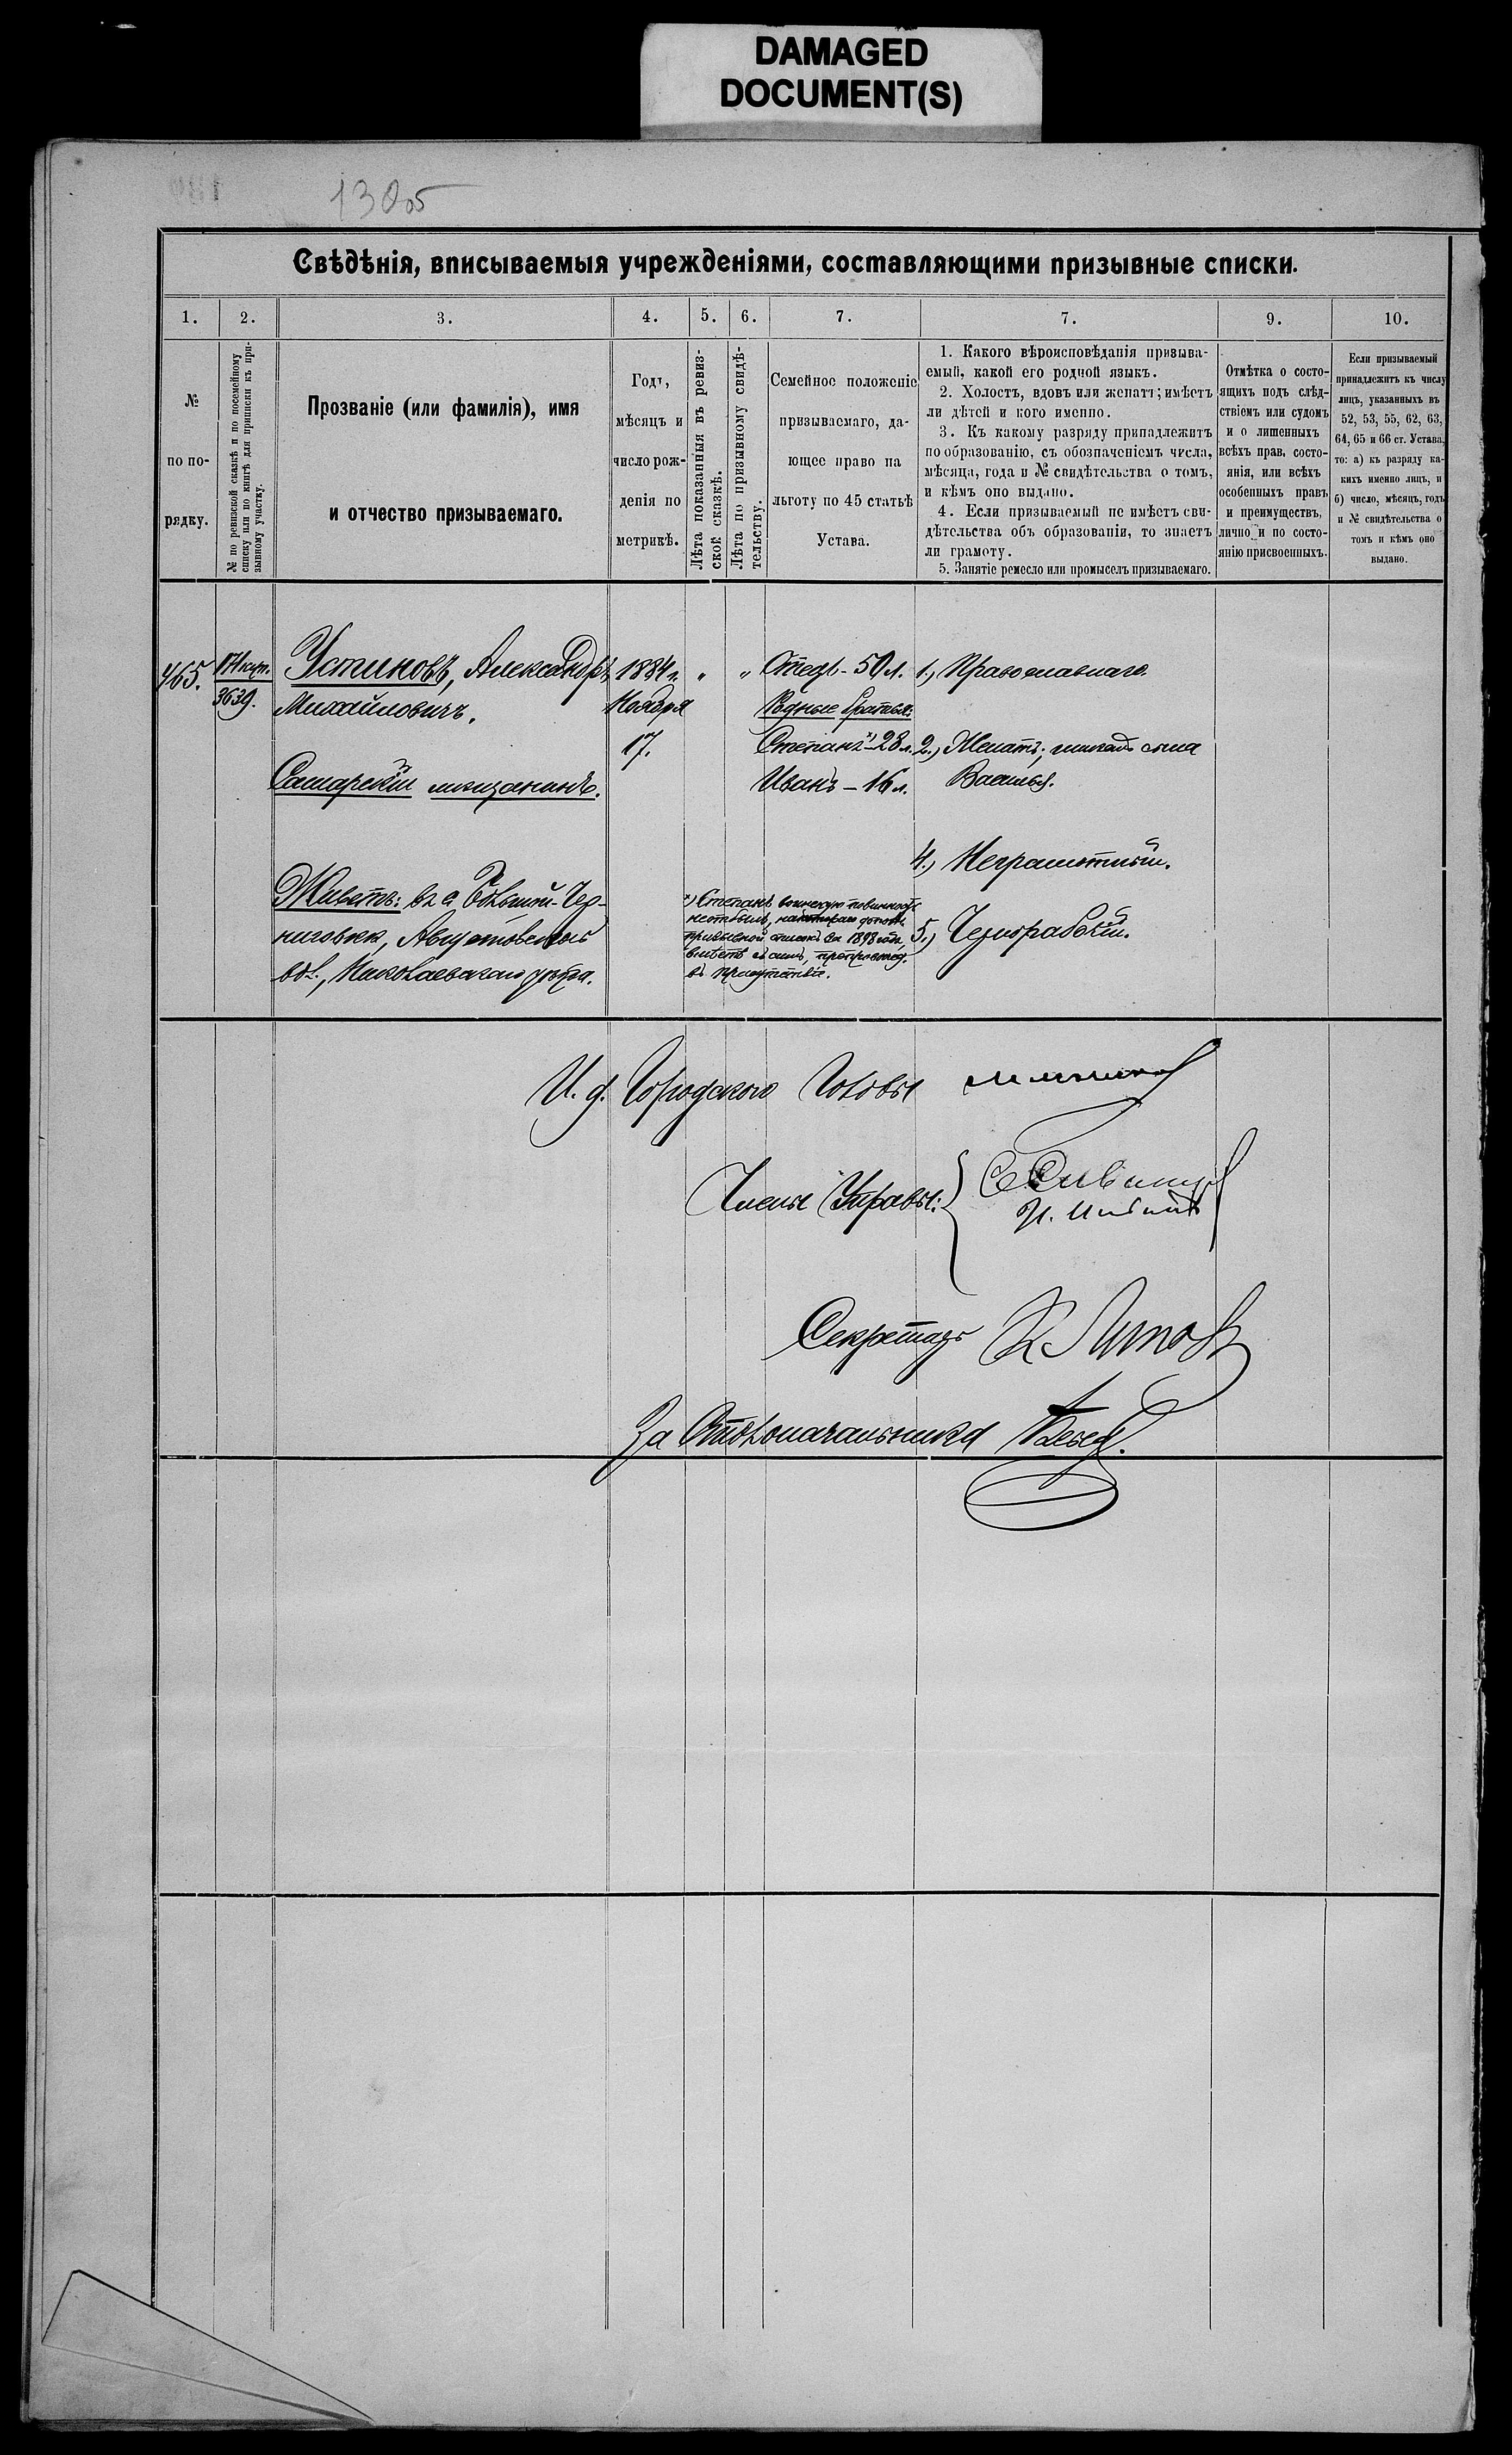 DAMAGED
DOCUMENT(S)
1305
Свѣдѣнія, вписываемыя учрежденіями, составляющими призывные списки.
1. 2. 3. 4. 5. 6. 7. 7. 9. 10.
№
по по-
рядку.
№ по ревизской сказкѣ и по посемейному
списку или по книгѣ для приписки къ при-
зывному участку.
Прозваніе (или фамилія), имя
и отчество призываемаго.
Годъ,
мѣсяцъ и
число рож-
денія по
метрикѣ.
Лѣта показанныя въ ревиз-
ской сказкѣ.
Лѣта по призывному свидѣ-
тельству.
Семейное положеніе
призываемаго, да-
ющее право на
льготу по 45 статьѣ
Устава.
1. Какого вѣроисповѣданія призыва-
емый, какой его родной языкъ.
2. Холостъ, вдовъ или женатъ; имѣетъ
ли дѣтей и кого именно.
3. Къ какому разряду принадлежитъ
по образованію, съ обозначеніемъ числа,
мѣсяца, года и № свидѣтельства о томъ,
и кѣмъ оно выдано.
4. Если призываемый не имѣетъ сви-
дѣтельства объ образованіи, то знаетъ
ли грамоту.
5. Занятіе ремесло или промыселъ призываемаго.
Отмѣтка о состо-
ящихъ подъ слѣд-
ствіемъ или судомъ
и о лишенныхъ
всѣхъ прав, состо-
янія, или всѣхъ
особенныхъ правъ
и преимуществъ,
лично и по состо-
янію присвоенныхъ.
Если призываемый
принадлежитъ къ числу
лицъ, указанныхъ въ
52, 53, 55, 62, 63,
64, 65 и 66 ст. Устава,
то: а) къ разряду ка-
кихъ именно лицъ, и
б) число, мѣсяцъ, годъ
и № свидѣтельства о
томъ и кѣмъ оно
выдано.
465.
3639.
Устиновъ, Александръ
Михайловичъ.
Самарскій мѣщанинъ.
Живетъ: въ с. Большой-Чер-
ниговкѣ, Августовской
вол., Николаевскаго уѣзда.
1884 г.
Ноября
17.
"
"
Отецъ - 50 л.
Родные братья:
Степанъ*) - 28 л.
Иванъ - 16 л.
*) Степанъ воинскую повинность
не отбылъ, на котораго дополн.
призывной списокъ за 1898 годъ,
вмѣстѣ съ симъ, препровожд.
въ Присутствіе.
1.) Православнаго.
2.) Женатъ; имѣетъ сына
Василья.
4.) Неграмотный.
5.) Чернорабочій.
И. д. Городского Головы
Члены Управы:
Секретарь
За Столоначальника